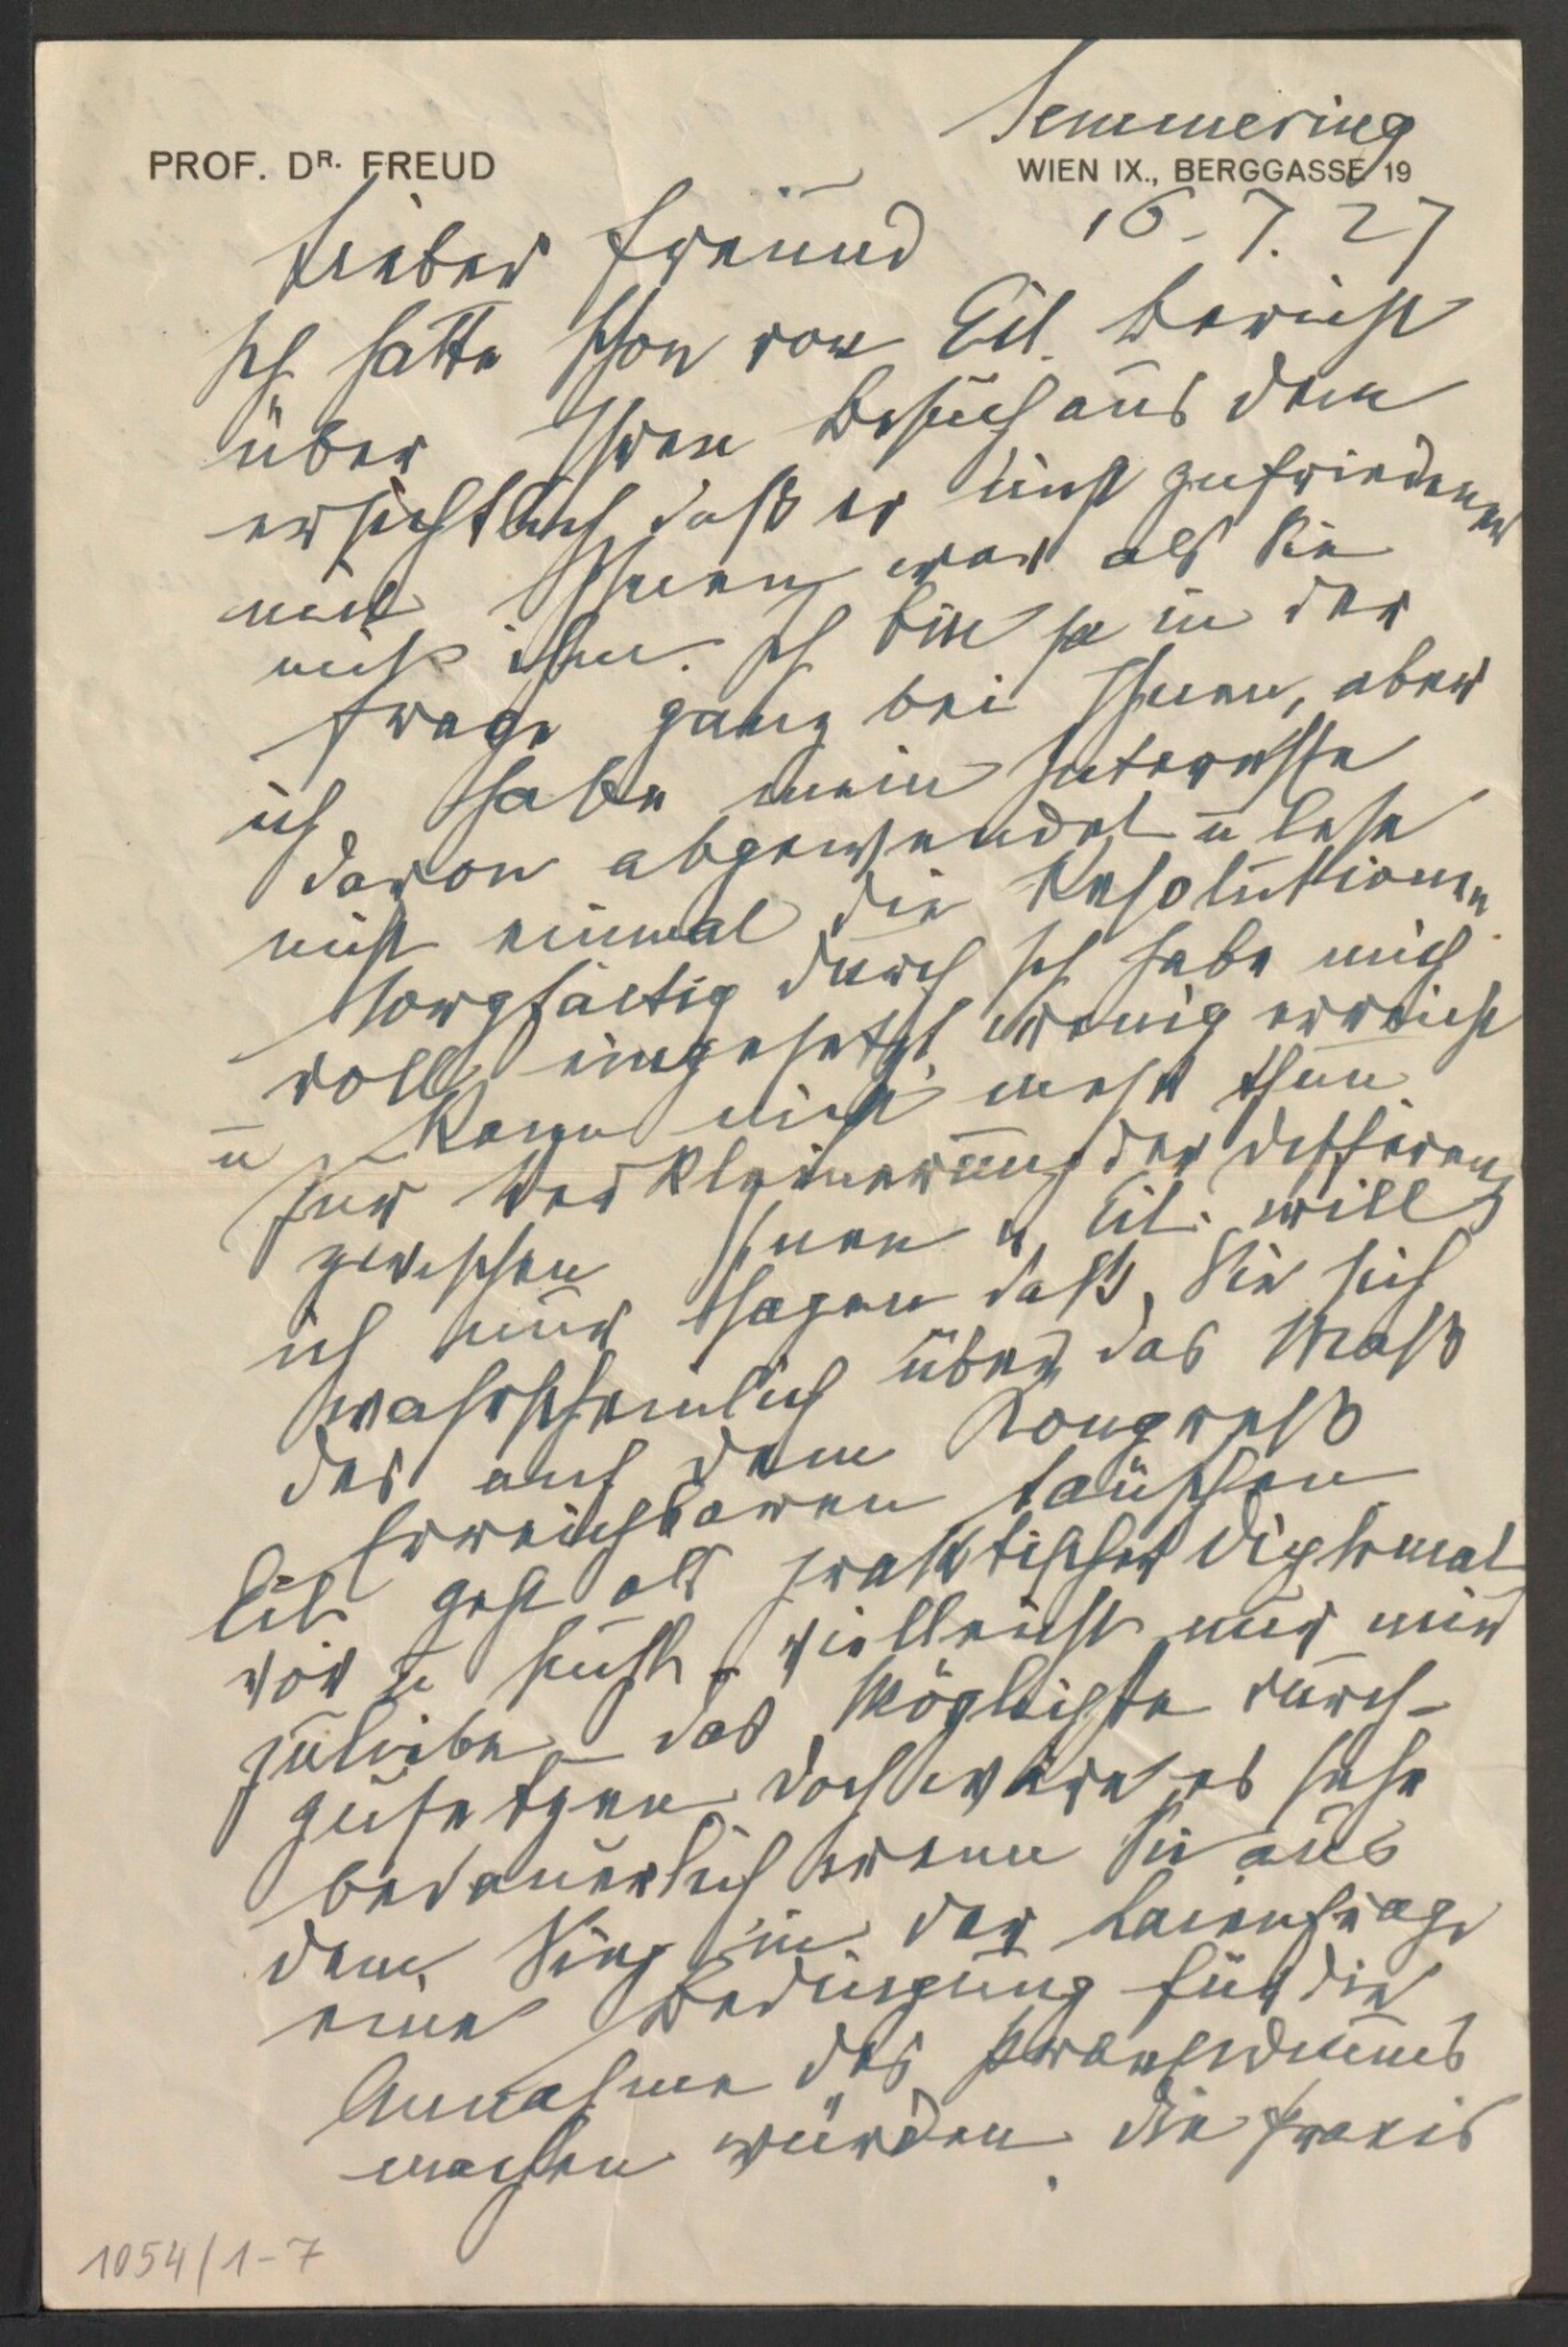 Semmering
PROF. DR. FREUD WIEN IX., BERGGASSE 19
16. 7. 27
Lieber Freund
Ich hatte schon von Eit. Bericht
über Ihren Besuch aus dem
ersichtlich daß er nicht zufriedener
mit Ihnen war als Sie
mit ihm. Ich bin ja in der
Frage ganz bei Ihnen, aber
ich habe mein Interesse
davon abgewendet u lese
nicht einmal die Resolutionen
sorgfältig durch Ich habe mich
voll eingesetzt, wenig erreicht
u kann nicht mehr thun
Zur Verkleinerung der Differenz
zwischen Ihnen u Eit. will
ich nur sagen daß Sie sich
wahrscheinlich über das Maß
des auf dem Kongreß
Erreichbaren täuschen
Eit geht als praktischer Diplomat
vor u sucht – vielleicht nur mir
zuliebe – das Möglichste durch-
zusetzen doch wäre es sehr
bedauerlich wenn Sie aus
dem Sieg in der Laienfrage
eine Bedingung für die
Annahme des Praesidiums
machen würden Die Praxis
1054/1-7